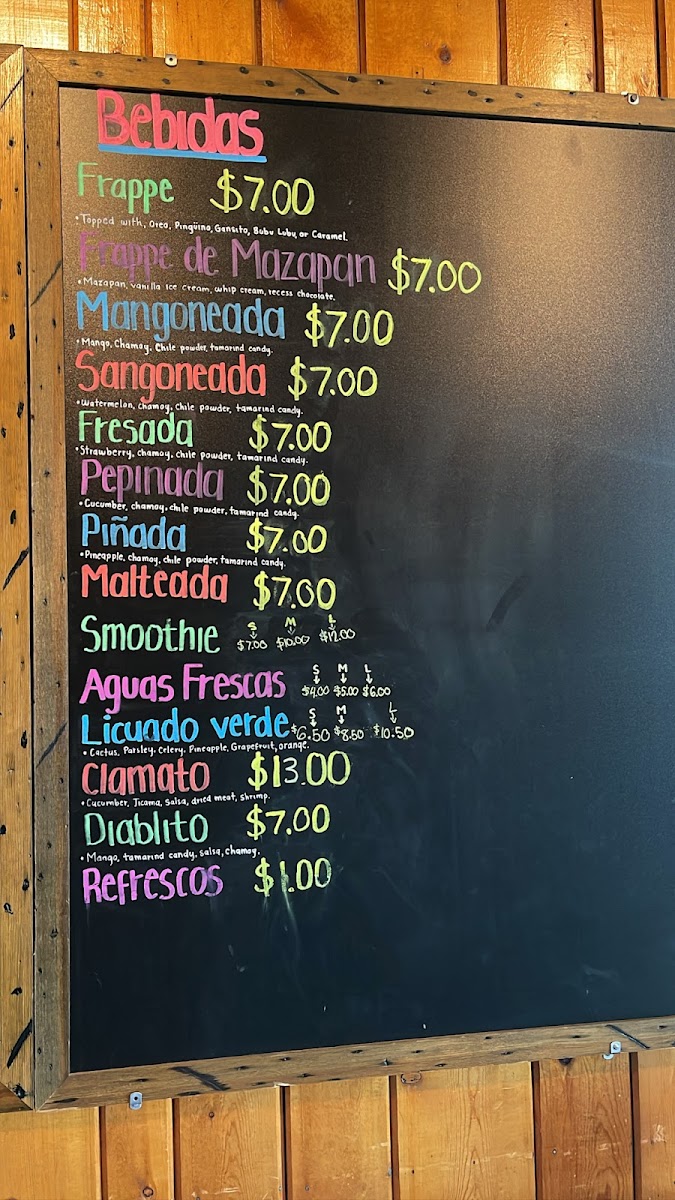 Bebidas
Frappe $7.00
•Topped with, Oreo, Pingüino, Gansito, Bubu Lubu, or Caramel.
Frappe de Mazapan $7.00
•Mazapan, vanilla ice cream, whip cream, recess chocolate.
Mangoneada $7.00
•Mango, Chamoy, Chile powder, tamarind candy.
Sangoneada $7.00
•Watermelon, chamoy, chile powder, tamarind candy.
Fresada $7.00
•Strawberry, chamoy, chile powder, tamarind candy.
Pepinada $7.00
•Cucumber, chamoy, chile powder, tamarind candy.
Piñada $7.00
•Pineapple, chamoy, chile powder, tamarind candy.
Malteada $7.00
S M L
Smoothie $7.00 $10.00 $12.00
S M L
Aguas Frescas $4.00 $5.00 $6.00
S M L
Licuado verde $6.50 $8.50 $10.50
• Cactus, Parsley, Celery, Pineapple, Grapefruit, orange.
Clamato $13.00
•Cucumber, Jicama, Salsa, dried meat, shrimp.
Diablito $7.00
• Mango, tamarind candy, salsa, chamoy.
Refrescos $1.00